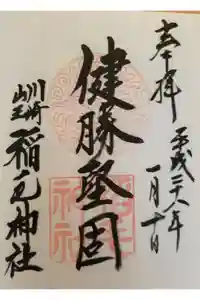 奉拝
平成二十八年
一月十日
健勝堅固
川崎
山王
稲毛神社